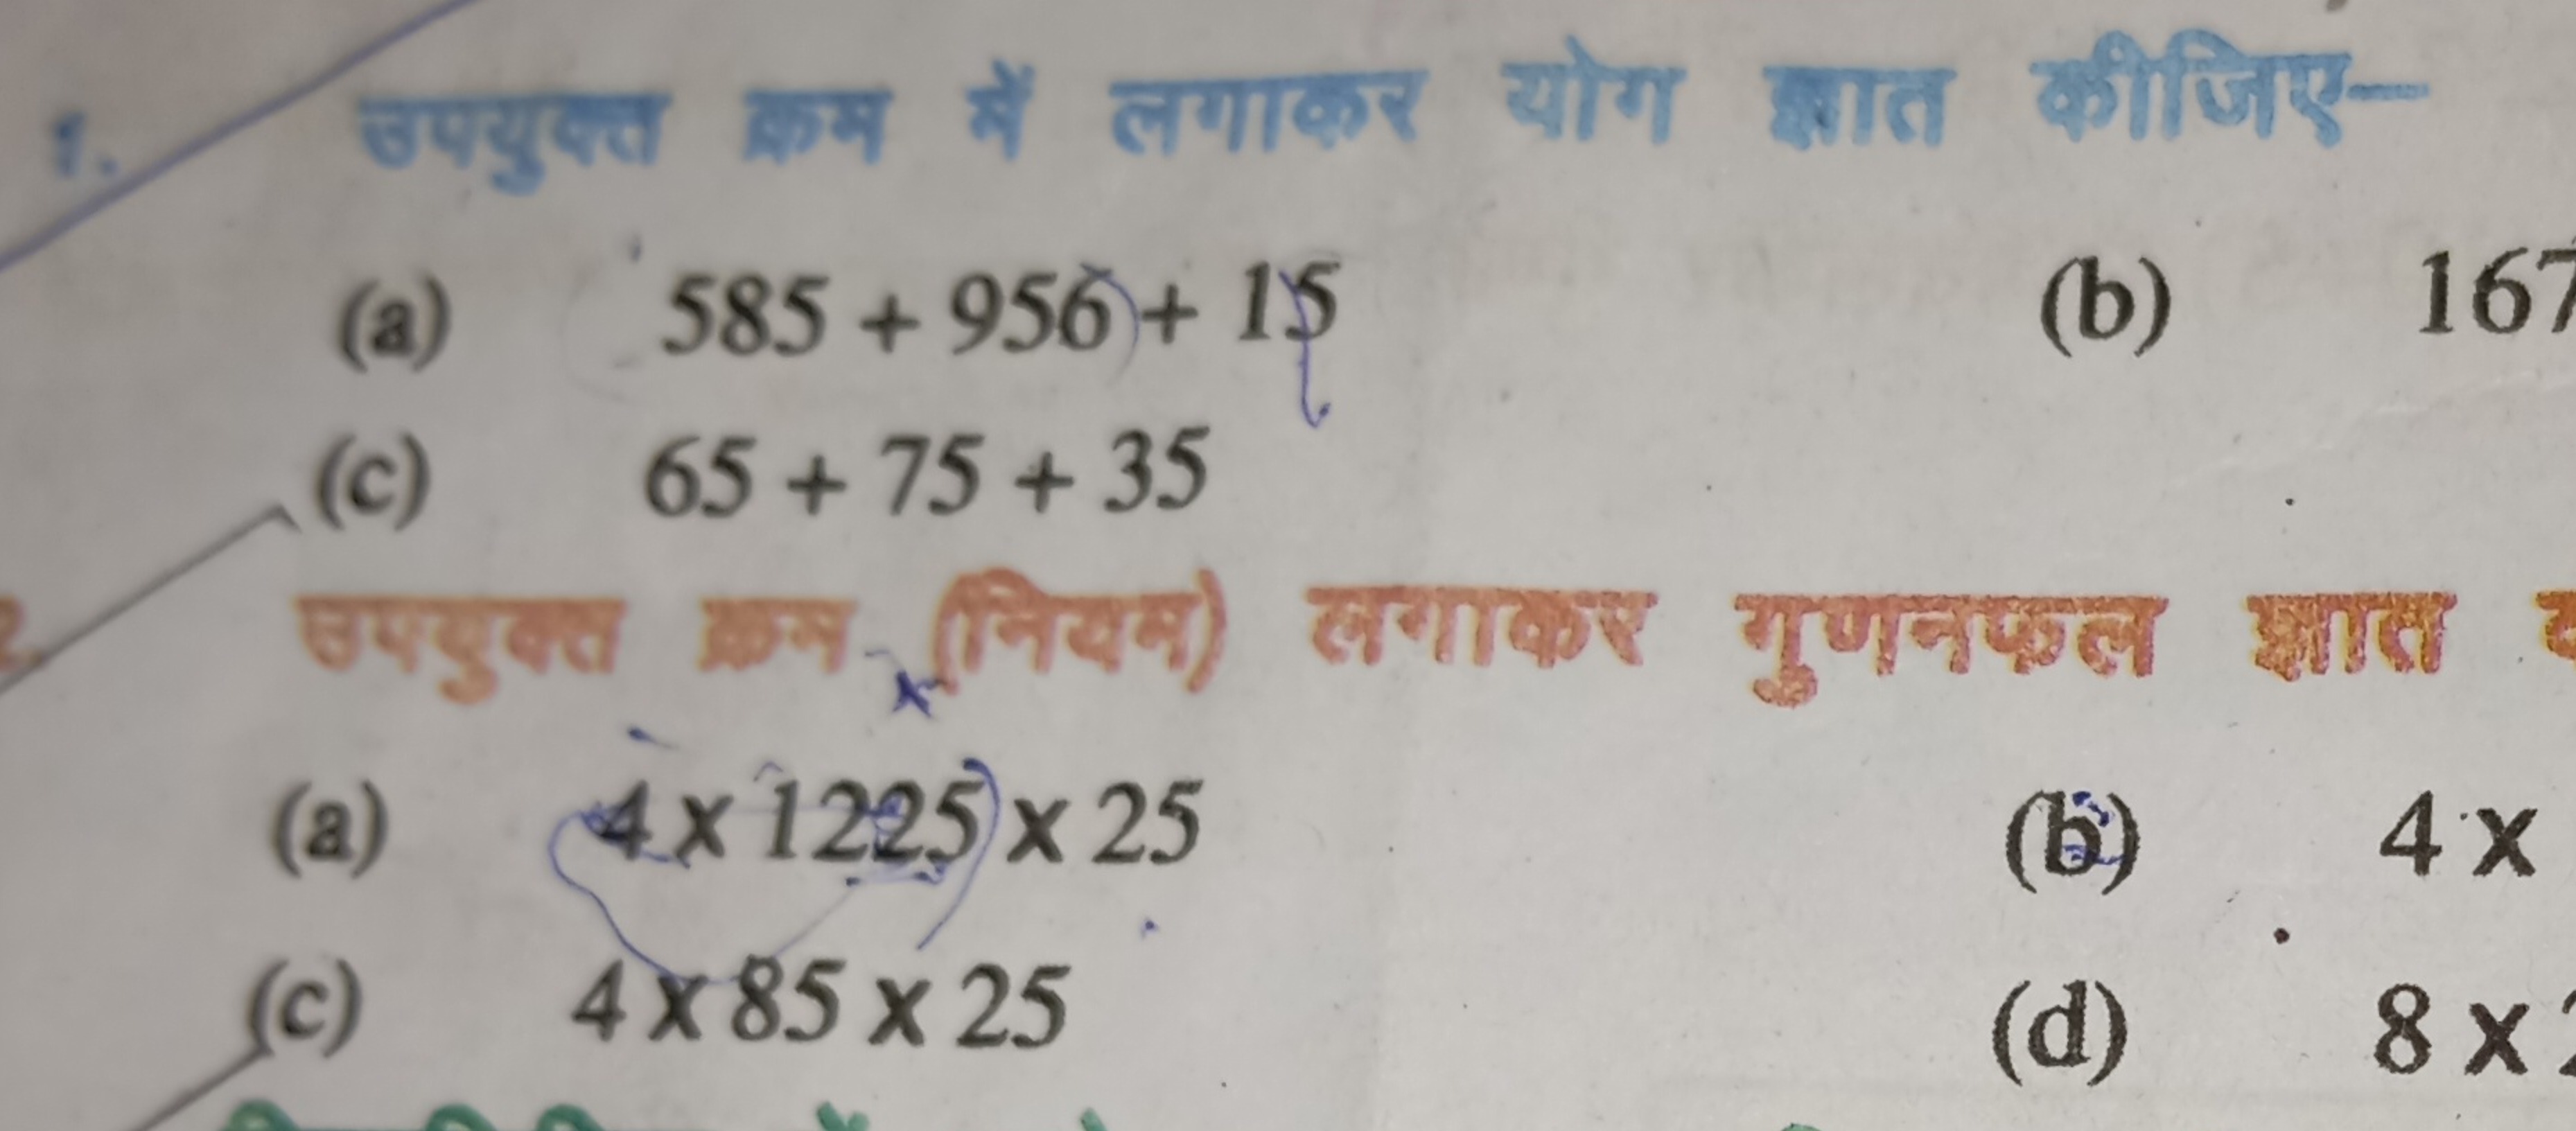 1. उपयुक्त क्रम में लगाकर योग ज्ञात कीजिए—
(a) 585 + 956 + 15 (b) 167
(c) 65 + 75 + 35
उपयुक्त क्रम (नियम) लगाकर गुणनफल ज्ञात
(a) 4 x 1225 x 25 (b) 4 x
(c) 4 x 85 x 25 (d) 8 x